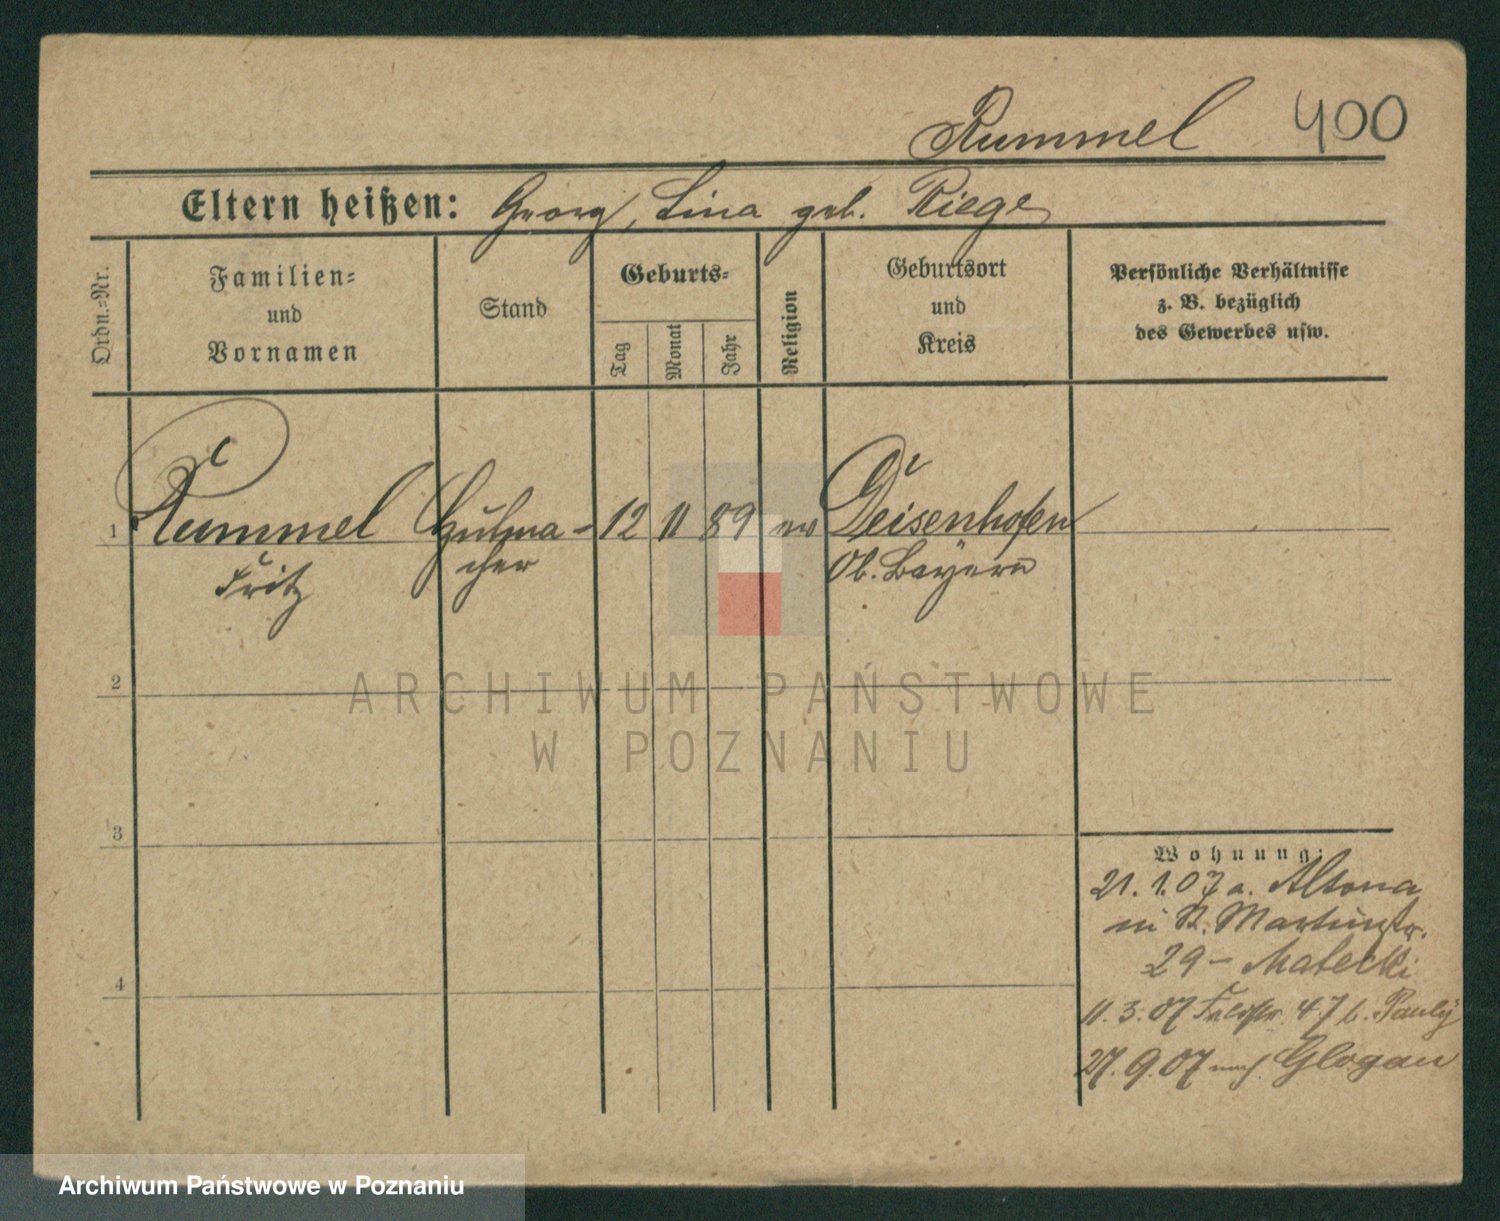 Rummel 400
Eltern heißen: Georg, Lina geb. Riege
Ordn.=Nr.
Familien=
und
Vornamen
Stand
Geburts=
Tag
Monat
Jahr
Religion
Geburtsort
und
Kreis
Persönliche Verhältnisse
z. B. bezüglich
des Gewerbes usw.
1 Rummel Hutma= 12 11 89 ev Deisenhofen
Fritz cher Ob. Bayern
2
ARCHIWUM PAŃSTWOWE
W POZNANIU
3
Wohnung:
21.1.07 a. Altona
in St. Martinstr.
29 - Matecki
4
11.3.07 Feldstr. 47 b. Pauly
27.9.07 nach Glogau
Archiwum Państwowe w Poznaniu